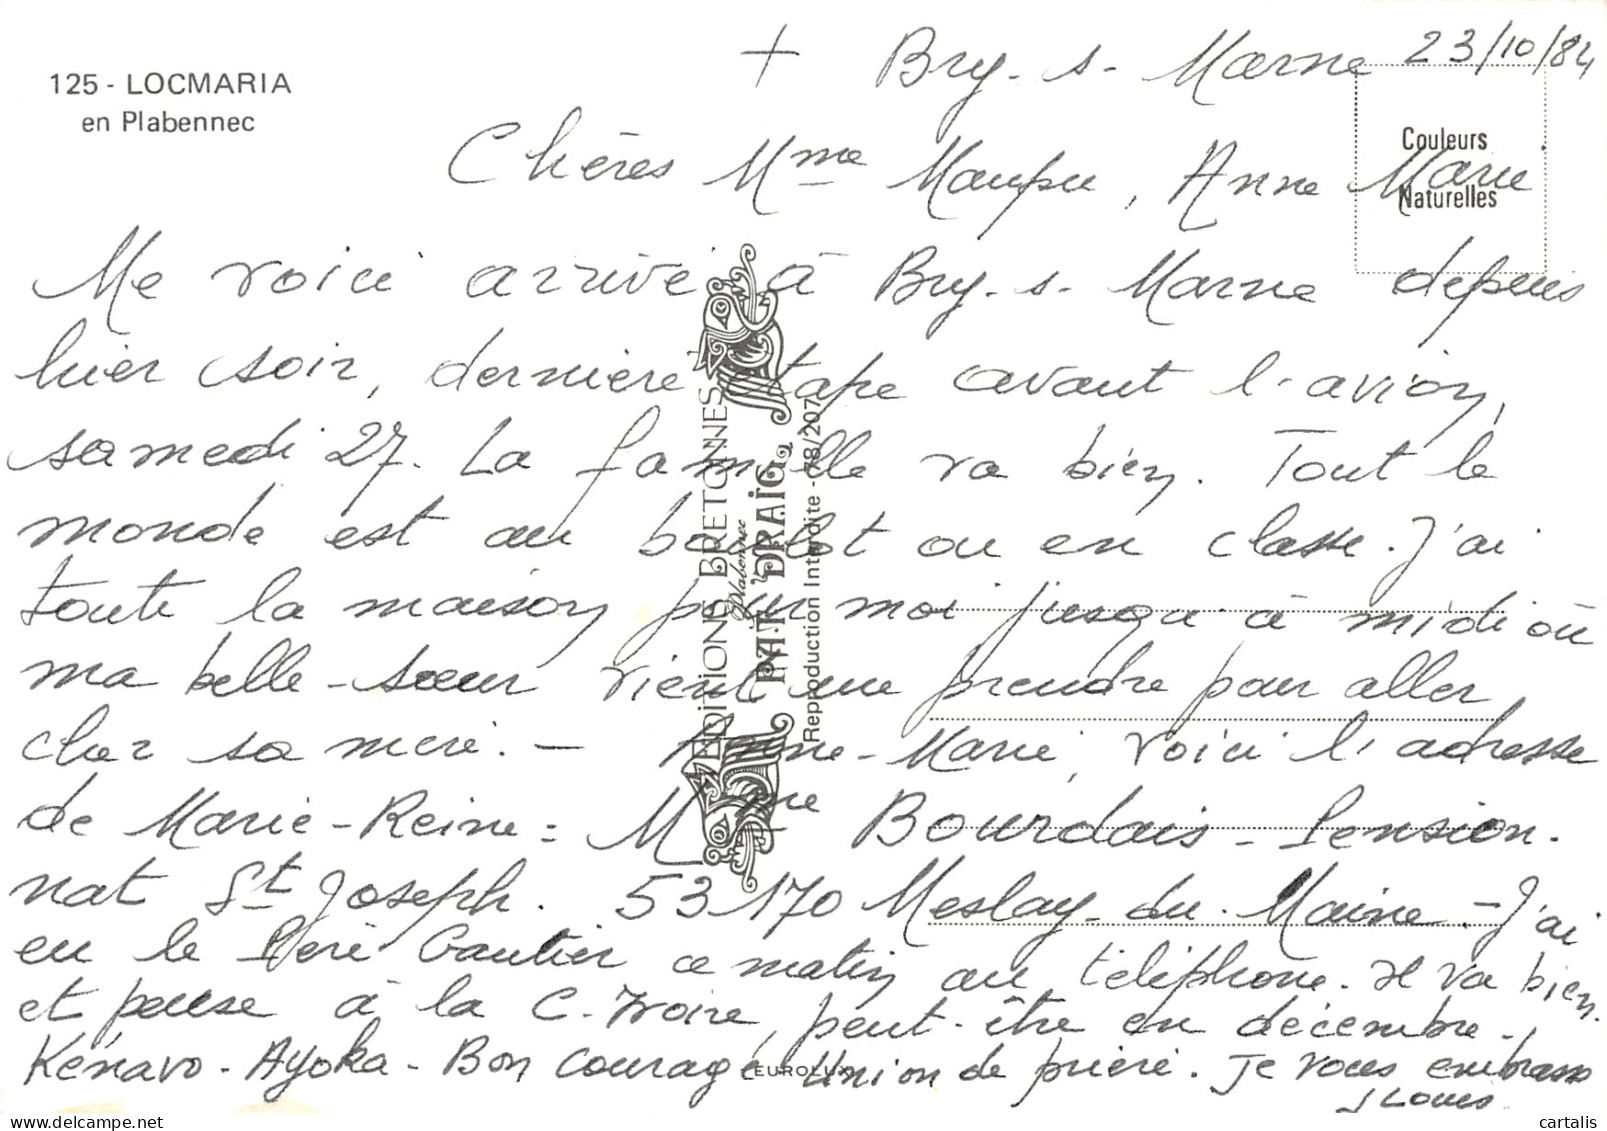 125 - LOCMARIA
en Plabennec
+ Bry-s-Marne 23/10/84
Couleurs
Naturelles
Chères Mme Maupu, Anne Marie
Me voici arrivé à Bry-s-Marne depuis
hier soir, dernière étape avant l'avion,
samedi 27. La famille va bien. Tout le
monde est au boulot ou en classe. J'ai
toute la maison pour moi jusqu'à midi où
ma belle-sœur vient me prendre pour aller
chez sa mère. - Anne-Marie, voici l'adresse
de Marie-Reine = Mme Bourdais - Pension-
nat St Joseph. 53170 Meslay-du-Maine - J'ai
eu le Père Gautier ce matin au téléphone. Il va bien
et pense à la C. Ivoire, peut-être en décembre.
Kénavo - Ayoka - Bon courage Union de prière. Je vous embrasse
J Louis
EDITIONS BRETONNES
Plabennec
PAT DRAÏG
Reproduction Interdite - 78/207
EUROLUX
cartalis